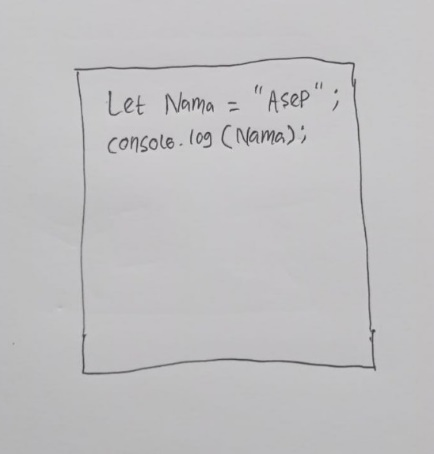 Let Nama = "Asep";
console.log (Nama);